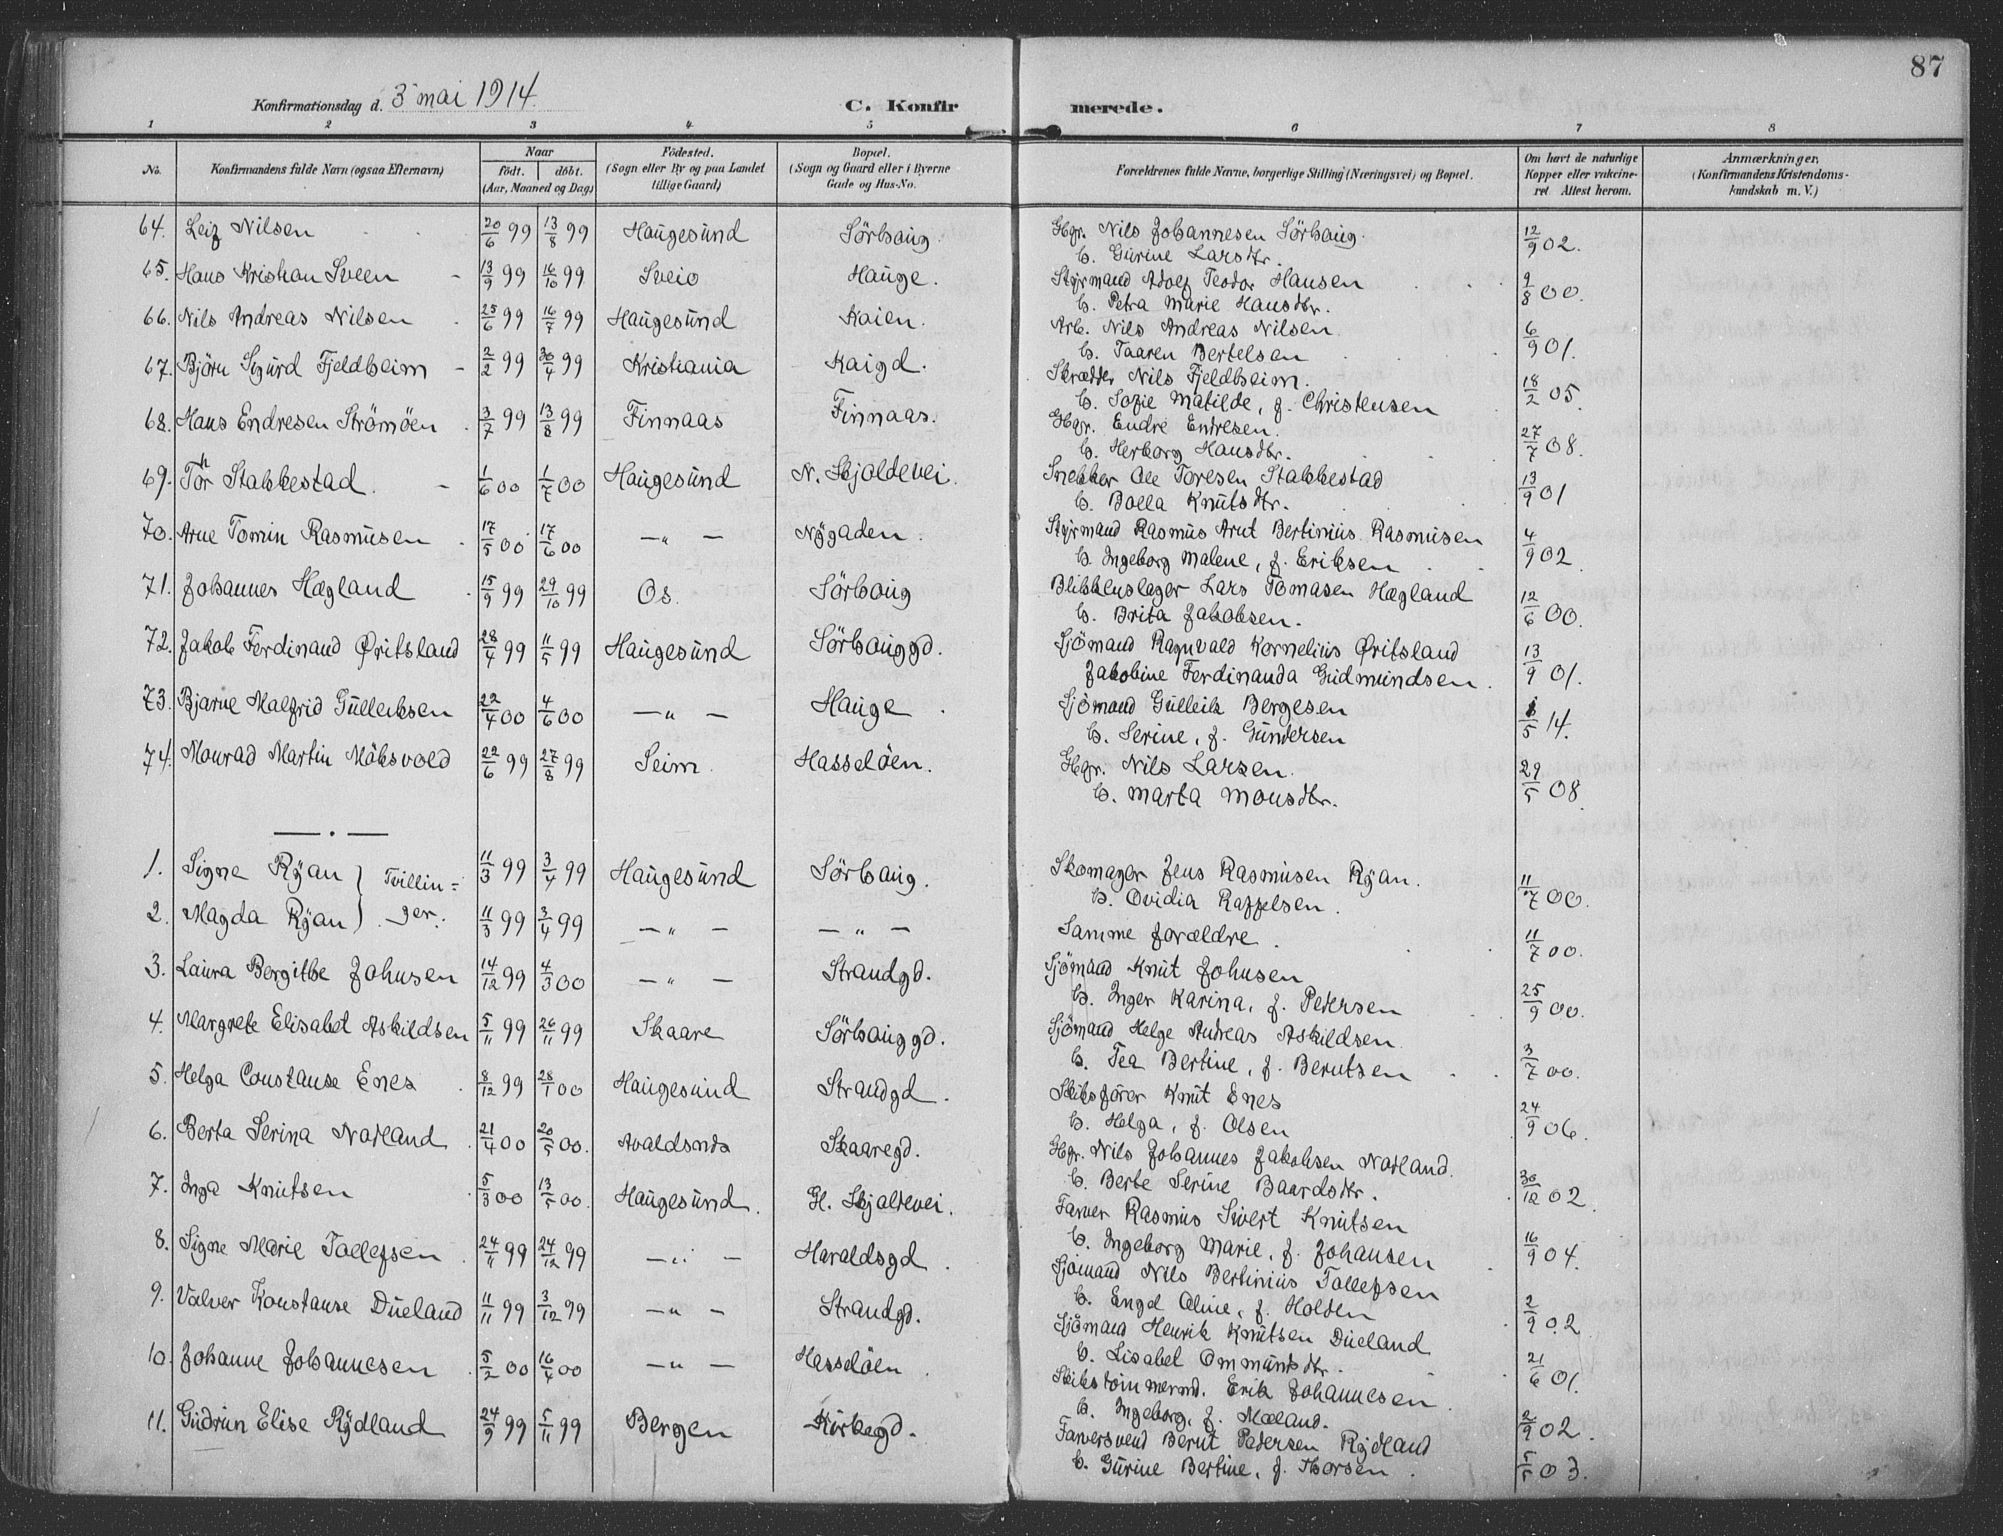 87
Konfirmationsdag d. 3 mai 1914. C. Konfirmerede.
1 2 3 4 5 6 7 8
No. Konfirmandens fulde Navn (ogsaa Efternavn) Naar født. døbt. (Aar, Maaned og Dag) Fødested. (Sogn eller By og paa Landet tillige Gaard) Bopæl. (Sogn og Gaard eller i Byerne Gade og Hus-No. Forældrenes fulde Navne, borgerlige Stilling (Næringsvei) og Bopæl. Om havt de naturlige Kopper eller vakcineret. Attest herom. Anmærkninger, (Konfirmandens Kristendomskundskab m. V.)
64. Leif Nilsen 20/6 99 13/8 99 Haugesund Sörhaug. Gbr. Nils Johannesen Sörhaug. 12/9 02.
H. Gurine Larsdtr.
65. Hans Kristian Sveen 13/9 99 16/10 99 Sveio Hauge. Styrmand Adolf Teodor Hansen 9/8 00.
H. Petra Marie Hansdtr.
66. Nils Andreas Nilsen 25/6 99 16/7 99 Haugesund Kaien. Arb. Nils Andreas Nilsen 6/9 01.
H. Taaren Bertelsen
67. Björn Sigurd Fjeldheim 2/2 99 30/4 99 Kristiania Kaigd. Skrædder Nils Fjeldheim. 18/2 05.
H. Sofie Matilde, f. Christensen
68. Hans Endresen Strömöen 3/7 99 13/8 99 Finnaas Finnaas. Gbr. Endre Endresen. 27/7 08.
H. Herborg Hansdtr.
69. Tor Stakkestad. 1/6 00 1/7 00 Haugesund N. Skjoldevei. Snekker Ole Toresen Stakkestad 13/9 01
H. Bolla Knutsdtr.
70. Arne Tomin Rasmusen 17/5 00 17/6 00 — " — Nygaden. Styrmand Rasmus Arnt Bertinius Rasmusen 4/9 02
H. Ingeborg Malene, f. Eriksen
71. Johannes Hægland 15/9 99 29/10 99 Os. Sörhaug Blikkenslager Lars Tomasen Hægland 12/6 00.
H. Brita Jakobsen.
72. Jakob Ferdinand Øritsland 28/4 99 11/5 99 Haugesund Sörhauggd. Sjömand Ragnvald Kornelius Øritsland 13/9 01.
Jakobine Ferdinanda Gudmundsen.
73. Bjarne Malfrid Gulleiksen 22/4 00 4/6 00 — " — Hauge. Sjömand Gulleik Bergesen /5 14.
H. Serine, f. Gundersen
74. Monrad Martin Möksvold 22/6 99 27/8 99 Seim. Hasselöen. Gbr. Nils Larsen. 29/5 08.
H. Marta Monsdtr.
1. Signe Ryan } Tvillin= 11/3 99 3/4 99 Haugesund Sörhaug. Skomager Jens Rasmusen Ryan. 11/7 00.
H. Ovidia Raffelsen.
2. Magda Ryan } ger. 11/3 99 3/4 99 — " — — " — Samme forældre. 11/7 00.
3. Laura Bergitte Johnsen 14/12 99 4/3 00 — " — Strandgd. Sjömand Knut Johnsen 25/9 00.
H. Inger Karina, f. Pedersen
4. Margrete Elisabet Askildsen 5/11 99 26/11 99 Skaare Sörhauggd. Sjömand Helge Andreas Askildsen. 3/7 00.
H. Tea Bertine, f. Berntsen
5. Helga Constanse Enes 8/12 99 28/1 00 Haugesund Strandgd. Skibsförer Knut Enes 24/9 06.
H. Helga, f. Olsen
6. Berta Serina Natland 21/4 00 20/5 00. Avaldsnæs Skaaregd. Gbr. Nils Johannes Jakobsen Natland. 30/12 02.
H. Berte Serine Baardsdtr.
7. Inga Knutsen 5/3 00 13/5 00. Haugesund. Gl. Skjoldevei. Farver Rasmus Sivert Knutsen 16/9 04.
H. Ingeborg Marie, f. Johansen
8. Signe Marie Tollefsen 24/11 99 24/12 99 — " — Haraldsgd. Sjömand Nils Bertinius Tollefsen 2/9 02
H. Engel Oline, f. Holden
9. Valver Konstanse Dueland 11/11 99 3/12 99 — " — Strandgd. Sjömand Henrik Knutsen Dueland 21/6 01.
H. Lisabet Ommundsdtr.
10. Johanne Johannesen 5/2 00 16/4 00 — " — Hasselöen. Skibstömmermd. Erik Johannesen. 2/9 02.
H. Ingeborg, f. Mæland.
11. Gudrun Elise Rydland 24/9 99 5/11 99 Bergen Kirkegd. Farversvend Bernt Pedersen Rydland 5/5 03.
H. Gurine Bertine, f. Thorsen.